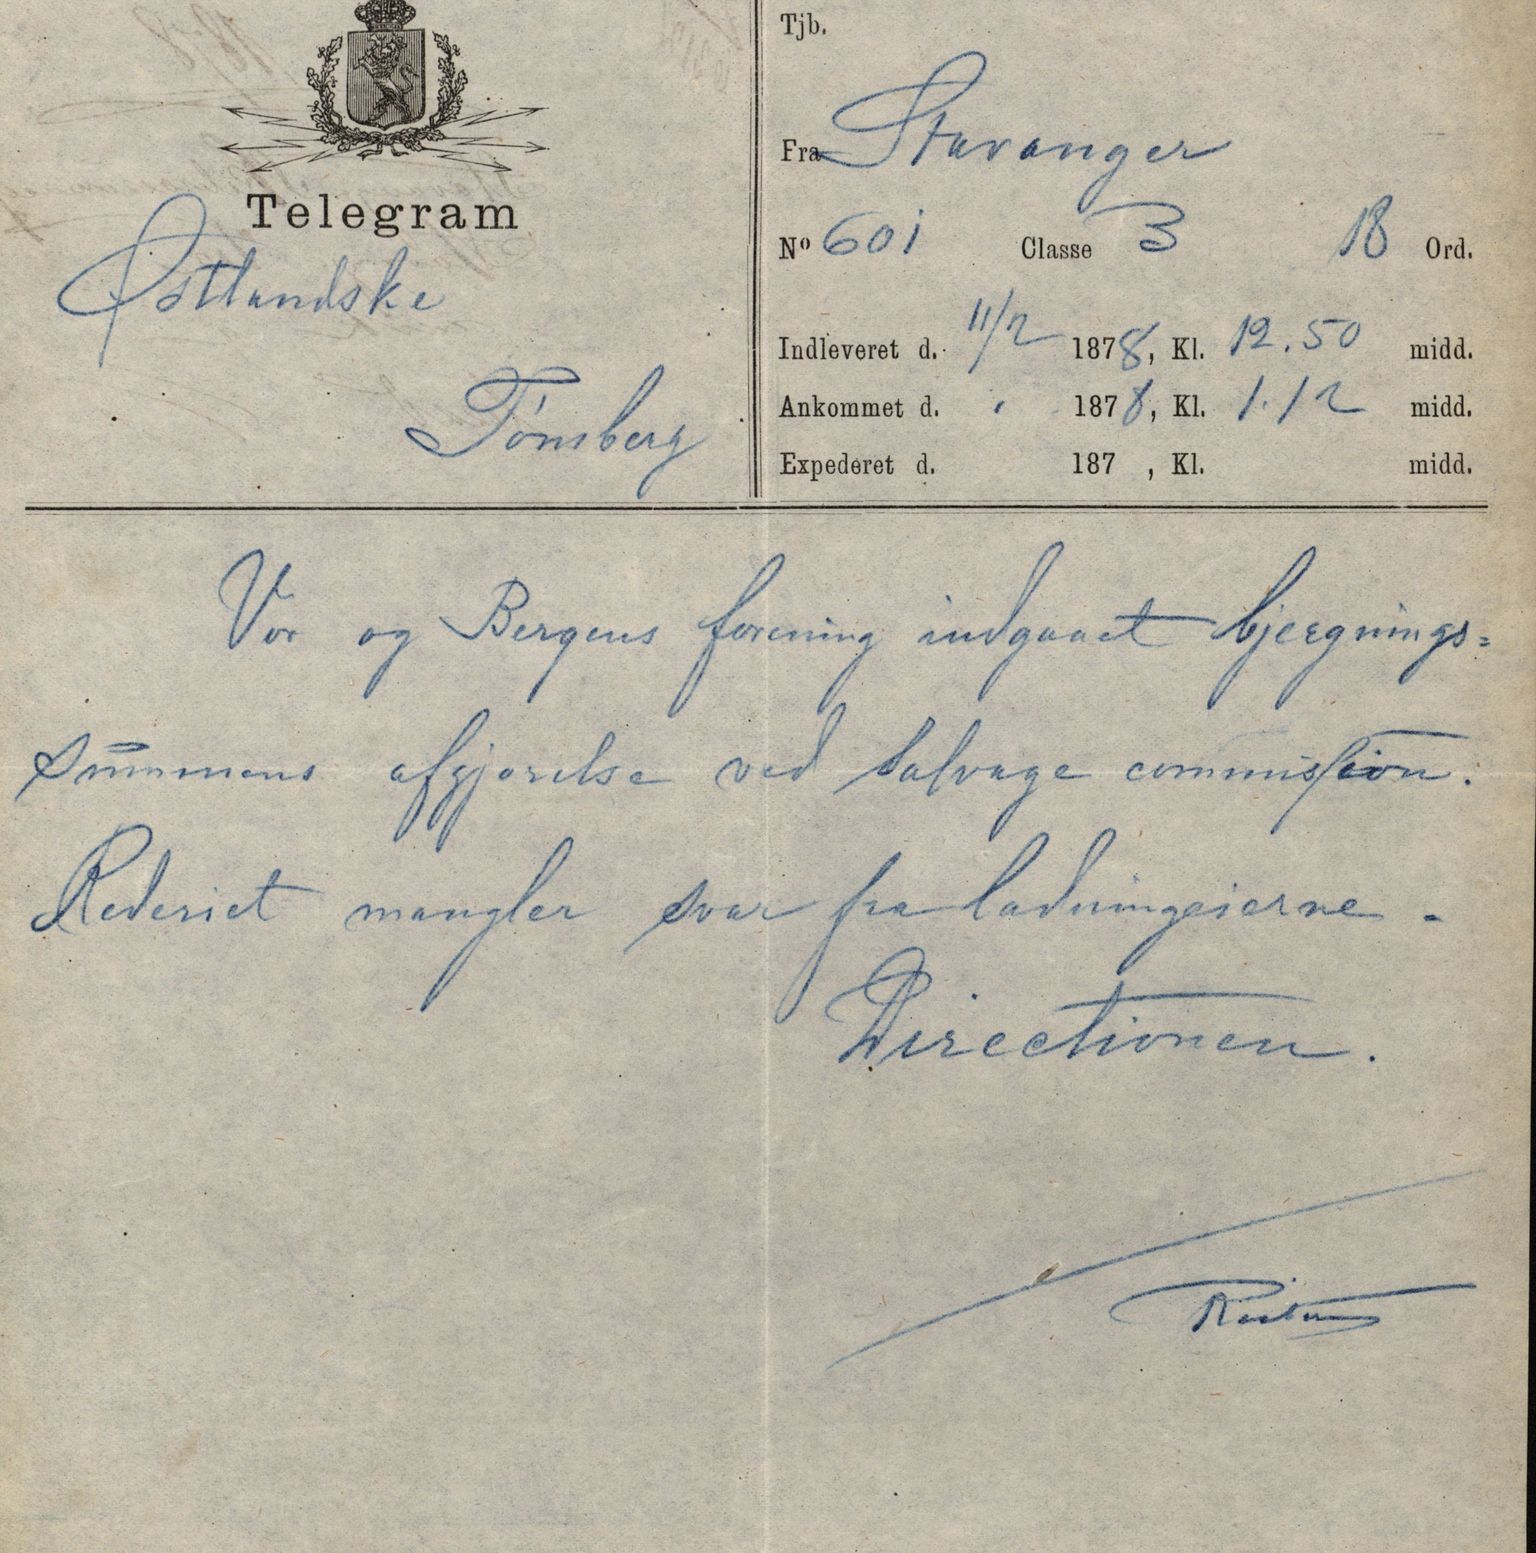 Telegram
Østlandske
Tönsberg
Tjb.
Fra Stavanger
No 601 Classe 3 18 Ord.
Indleveret d. 11/2 1878, Kl. 12.50 midd.
Ankommet d. " 1878, Kl. 1.12 midd.
Expederet d. 187 , Kl. midd.
Vor og Bergens forening indgaaet bjergnings=
summens afgjørelse ved Salvage commission.
Rederiet mangler svar fra ladningeierne -
Directionen.